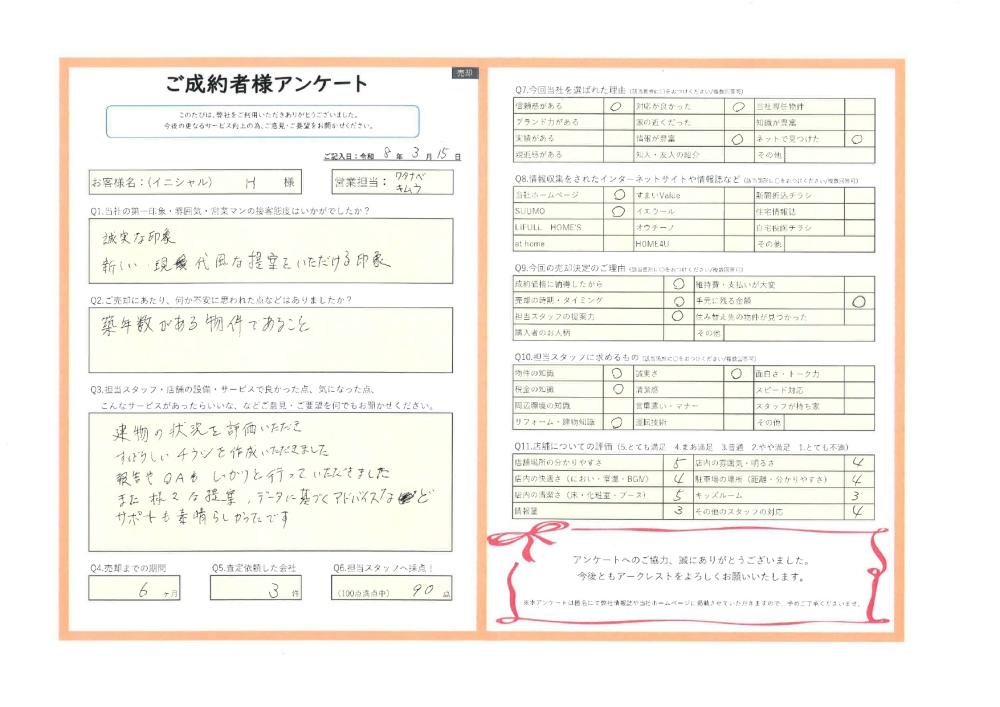 売却
ご成約者様アンケート
このたびは、弊社をご利用いただきありがとうございました。
今後の更なるサービス向上の為、ご意見・ご要望をお聞かせください。
ご記入日：令和 8 年 3 月 15 日
お客様名：(イニシャル) H 様
営業担当： ワタナベ
キムラ
Q1.当社の第一印象・雰囲気・営業マンの接客態度はいかがでしたか？
誠実な印象
新しい 現代風な提案をいただける印象
Q2.ご売却にあたり、何か不安に思われた点などはありましたか？
築年数がある物件であること
Q3.担当スタッフ・店舗の設備・サービスで良かった点、気になった点、
こんなサービスがあったらいいな、などご意見・ご要望を何でもお聞かせください。
建物の状況を評価いただき
すばらしいチラシを作成いただきました
報告やQAもしっかりと行っていただきました
また様々な提案、データに基づくアドバイスなど
サポートも素晴らしかったです
Q4.売却までの期間
6 ヶ月
Q5.査定依頼した会社
3 件
Q6.担当スタッフへ採点！
(100点満点中) 90 点
Q7.今回当社を選ばれた理由 (該当箇所に○をおつけください/複数回答可)
信頼感がある ○ 対応が良かった ○ 当社専任物件
ブランド力がある 家の近くだった 知識が豊富
実績がある 情報が豊富 ○ ネットで見つけた ○
親近感がある 知人・友人の紹介 その他
Q8.情報収集をされたインターネットサイトや情報誌など (該当箇所に○をおつけください/複数回答可)
当社ホームページ ○ すまいValue 新聞折込チラシ
SUUMO ○ イエウール 住宅情報誌
LIFULL HOME'S オウチーノ 自宅投函チラシ
at home HOME4U その他
Q9.今回の売却決定のご理由 (該当箇所に○をおつけください/複数回答可)
成約価格に納得したから ○ 維持費・支払いが大変
売却の時期・タイミング ○ 手元に残る金額 ○
担当スタッフの提案力 ○ 住み替え先の物件が見つかった
購入者のお人柄 その他
Q10.担当スタッフに求めるもの (該当箇所に○をおつけください/複数回答可)
物件の知識 ○ 誠実さ ○ 面白さ・トーク力
税金の知識 ○ 清潔感 スピード対応
周辺環境の知識 言葉遣い・マナー スタッフが持ち家
リフォーム・建物知識 ○ 運転技術 その他
Q11.店舗についての評価 (5.とても満足 4.まあ満足 3.普通 2.やや満足 1.とても不満)
店舗場所の分かりやすさ 5 店内の雰囲気・明るさ 4
店内の快適さ（におい・室温・BGM） 4 駐車場の場所（距離・分かりやすさ） 4
店内の清潔さ（床・化粧室・ブース） 5 キッズルーム 3
情報量 3 その他のスタッフの対応 4
アンケートへのご協力、誠にありがとうございました。
今後ともアークレストをよろしくお願いいたします。
※本アンケートは匿名にて弊社情報誌や当社ホームページに掲載させていただきますので、予めご了承くださいませ。